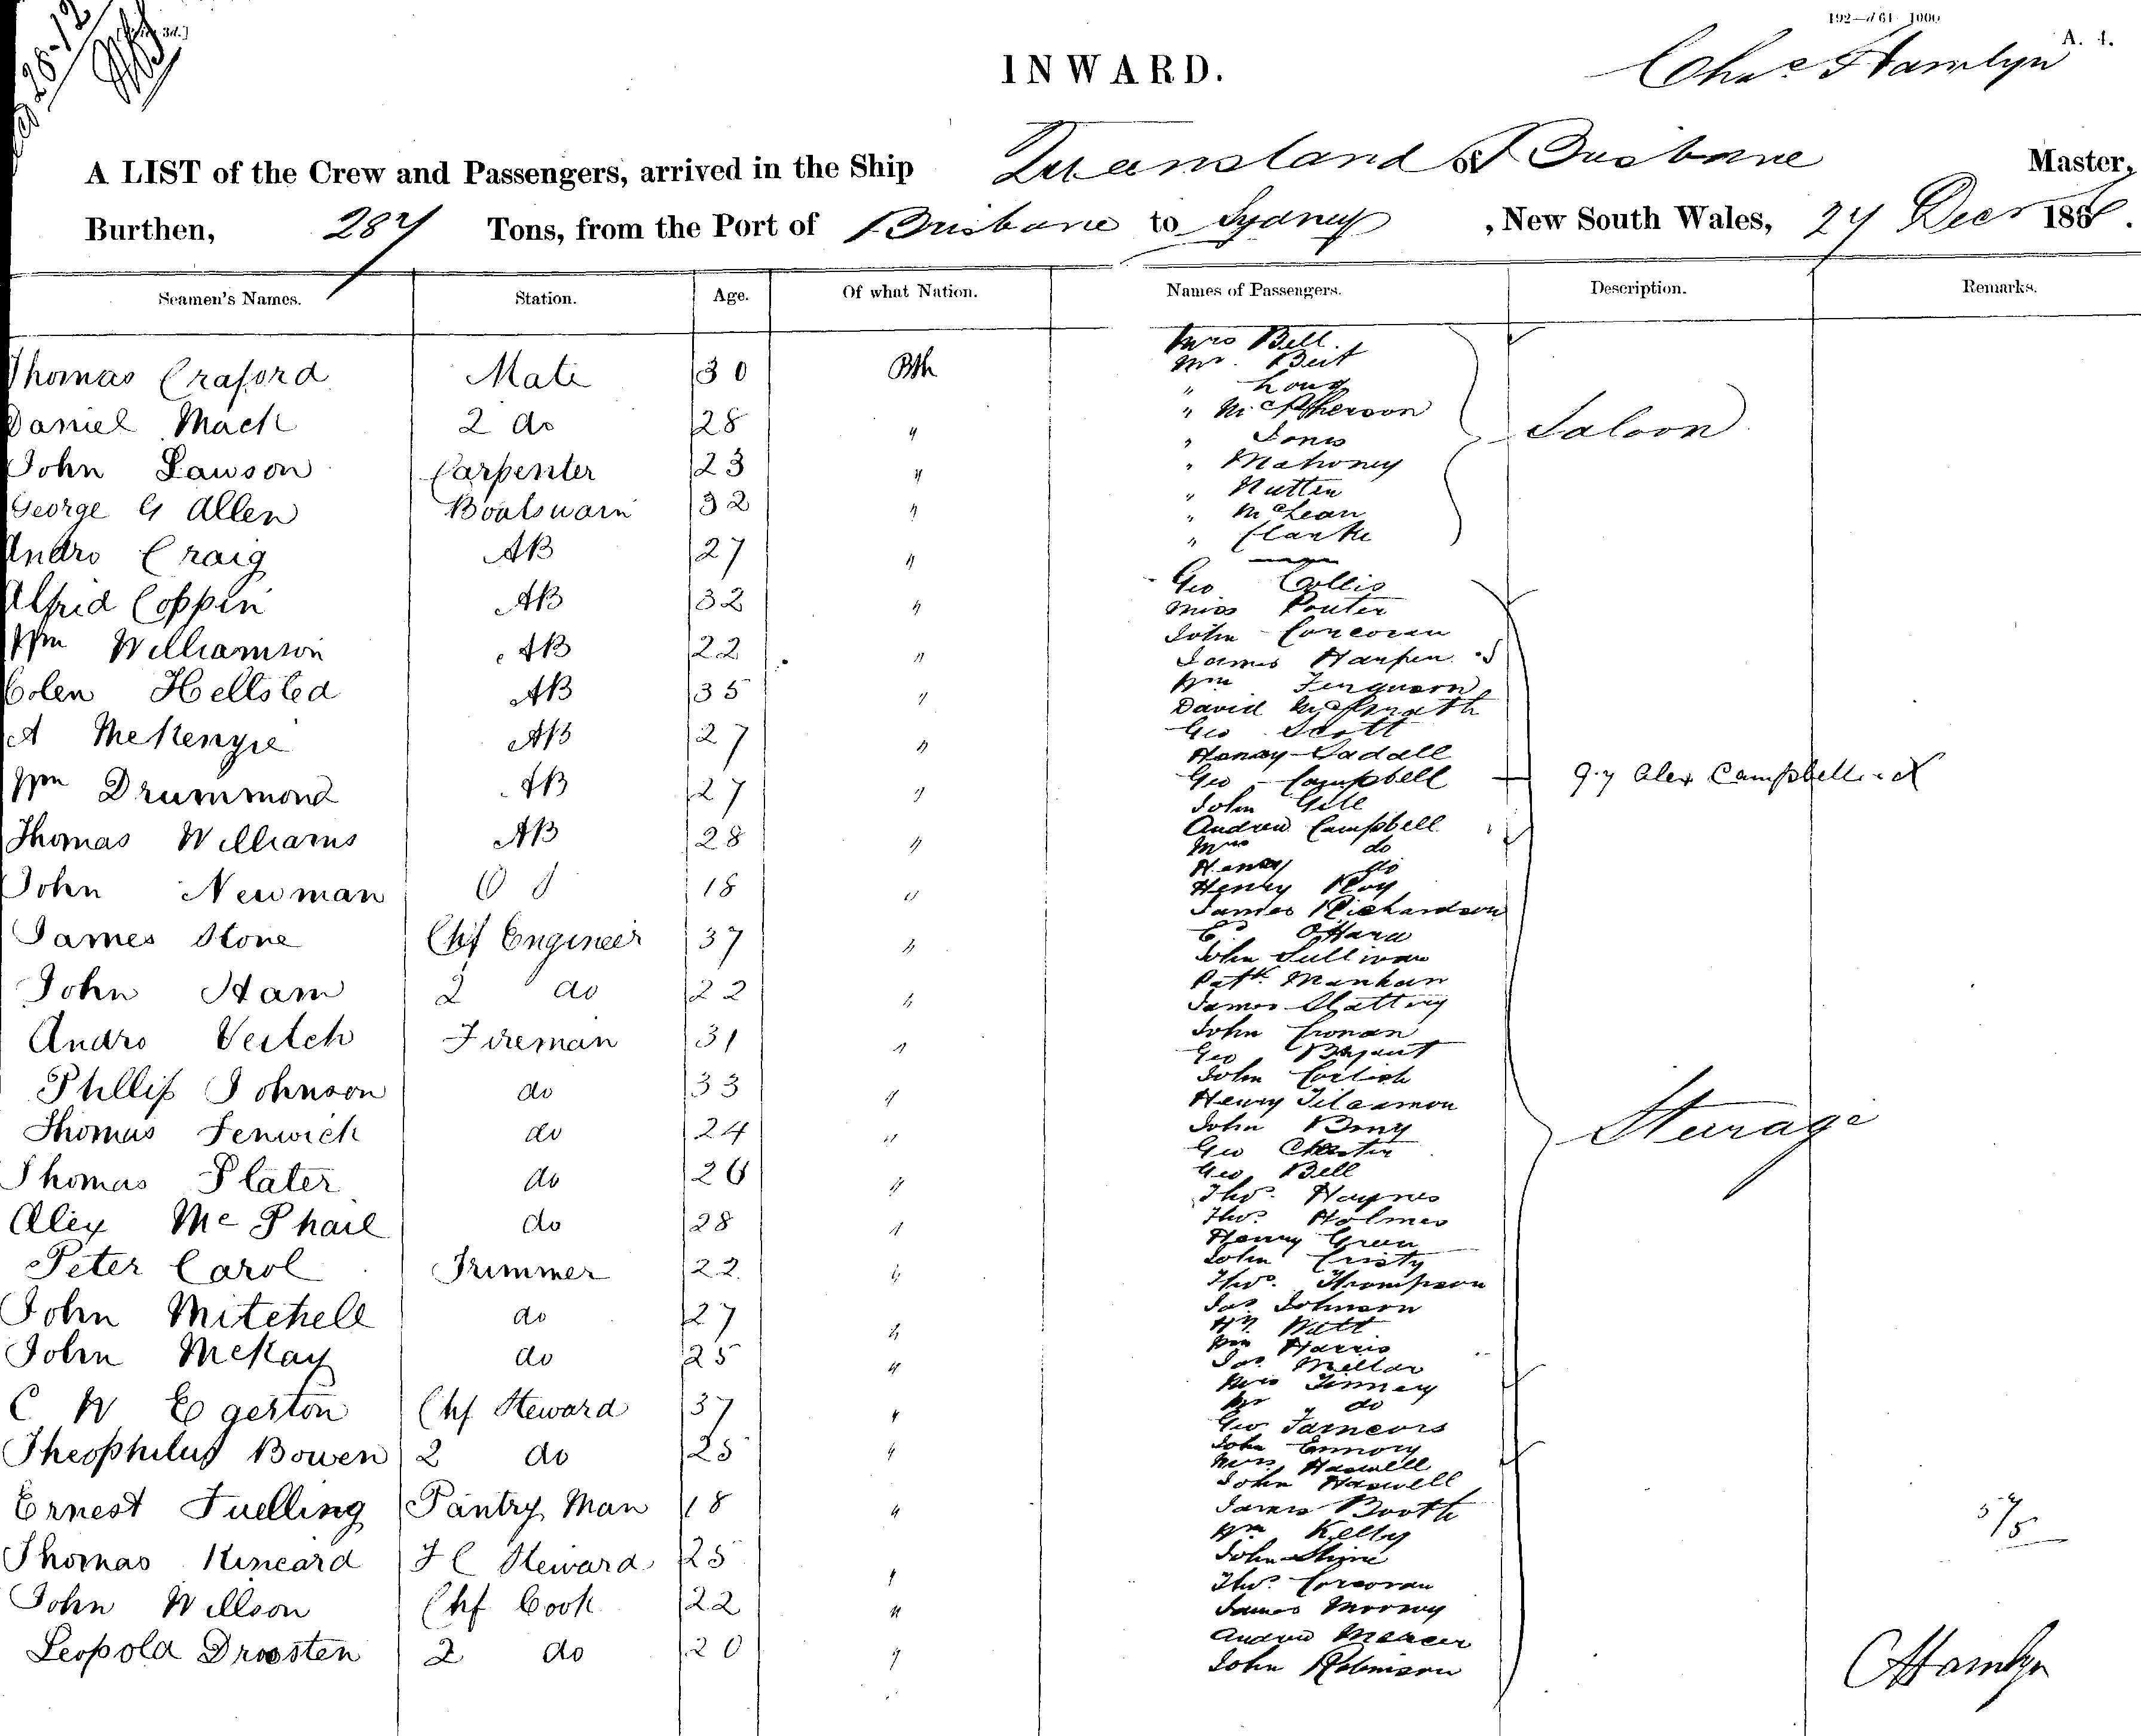 192—d 61 1000
A. 4.
INWARD.
Chas Hamlyn
A LIST of the Crew and Passengers, arrived in the Ship Queensland of Brisbane Master,
Burthen, 287 Tons, from the Port of Brisbane to Sydney , New South Wales, 24 Decr 186 .
Seamen's Names. Station. Age. Of what Nation. Names of Passengers. Description. Remarks.
Thomas Craford Mate 30 Bth
Daniel Mack 2 do 28 "
John Lawson Carpenter 23 "
George G Allen Boatswain 32 "
Andro Craig AB 27 "
Alfred Coppin AB 32 "
Wm Williamson AB 22 "
Colen Hellsted AB 35 "
A McKenzie AB 27 "
Wm Drummond AB 27 "
Thomas Williams AB 28 "
John Newman O S 18 "
James Stone Chf Engineer 37 "
John Ham 2 do 22 "
Andro Veitch Fireman 31 "
Phillip Johnson do 33 "
Thomas Fenwick do 24 "
Thomas Plater do 26 "
Alex McPhail do 28 "
Peter Carol Trimmer 22 "
John Mitchell do 27 "
John McKay do 25 "
C W Egerton Chf Steward 37 "
Theophilus Bowen 2 do 25 "
Ernest Fuelling Pantry Man 18 "
Thomas Kincard F C Steward 25 "
John Willson Chf Cook 22 "
Leopold Droosten 2 do 20 "
Mrs Bell
Mr. Beit
" Long
" McPherson
" Jones
" Mahoney
" Nutten
" McLean
" Clarke
Saloon
Geo Collis
Miss Pouter
John Corcoran
James
Wm Ferguson
David McGrath
Geo Scott
Henry Dadall
Geo Campbell
q.y Alex Campbell
John Gill
Andrew Campbell
Mrs do
Henry do
Henry Roy
James Richardson
Ed OHara
John Sullivan
Patk Manhan
James Slattery
John Cronan
Geo Bryant
John Corlish
Henry
John
Geo
Geo Bell
Thos. Haynes
Thos. Holmes
Henry Green
John Cristy
Thos. Thompson
Jas. Johnson
Hy Watt
Wm Harris
Jas. Mellar
Mrs Finney
Mr do
Geo
John Emmory
Mrs Haswell
John Haswell
James Booth
Wm Kelly
John Shine
Thos. Corcoran
James Mooney
Andrew Mercer
John Robinson
Sturage
57/5
CHamlyn